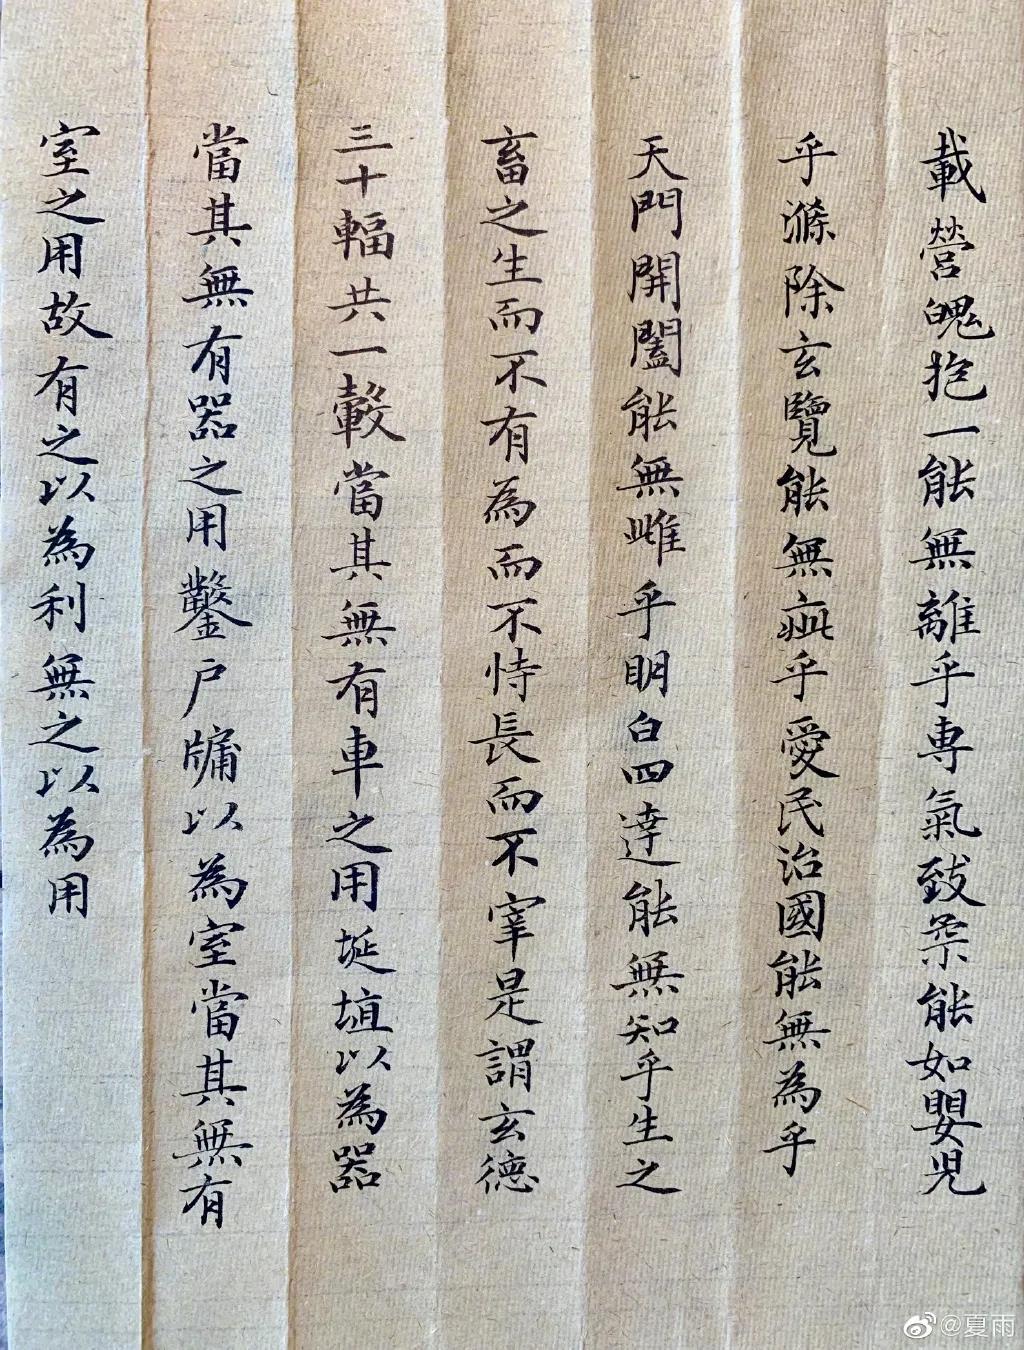 載營魄抱一能無離乎專氣致柔能如嬰児
乎滌除玄覽能無疵乎愛民治國能無為乎
天門開闔能無雌乎明白四達能無知乎生之
畜之生而不有為而不恃長而不宰是謂玄德
三十輻共一轂當其無有車之用埏埴以為器
當其無有器之用鑿戶牖以為室當其無有
室之用故有之以為利無之以為用
@夏雨